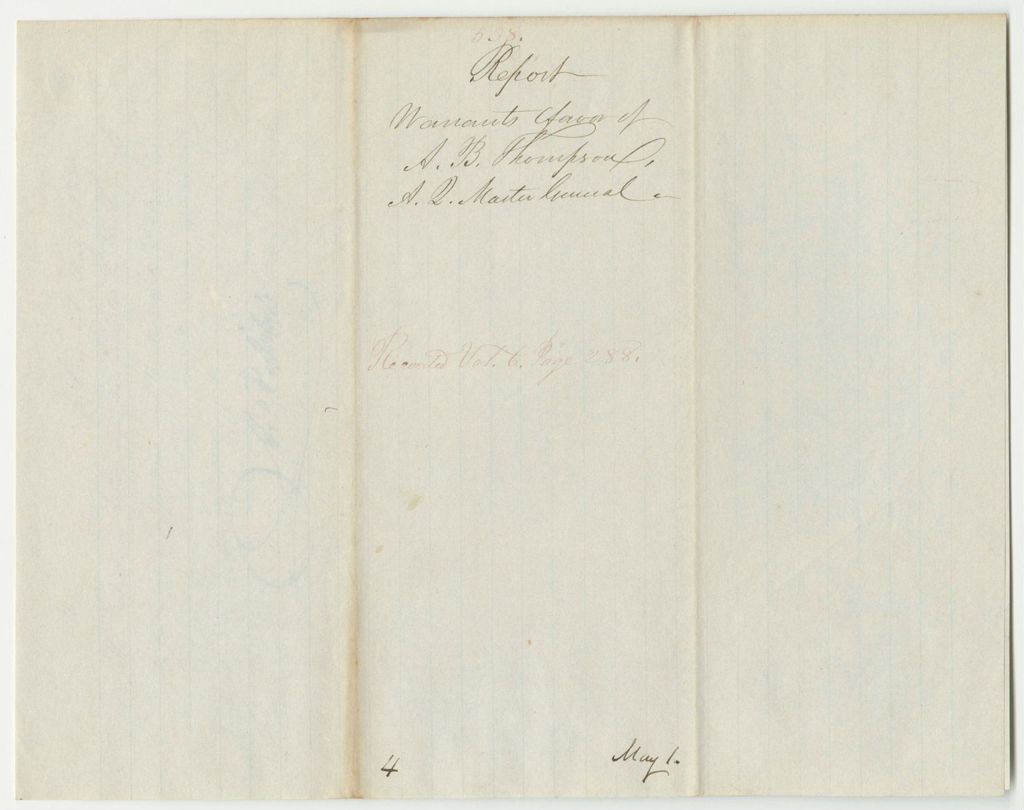 Report
Warrants favor of
A. B. Thompson,
A. Q. Master General
Recorded Vol. 6. Page 288.
4
May 1.